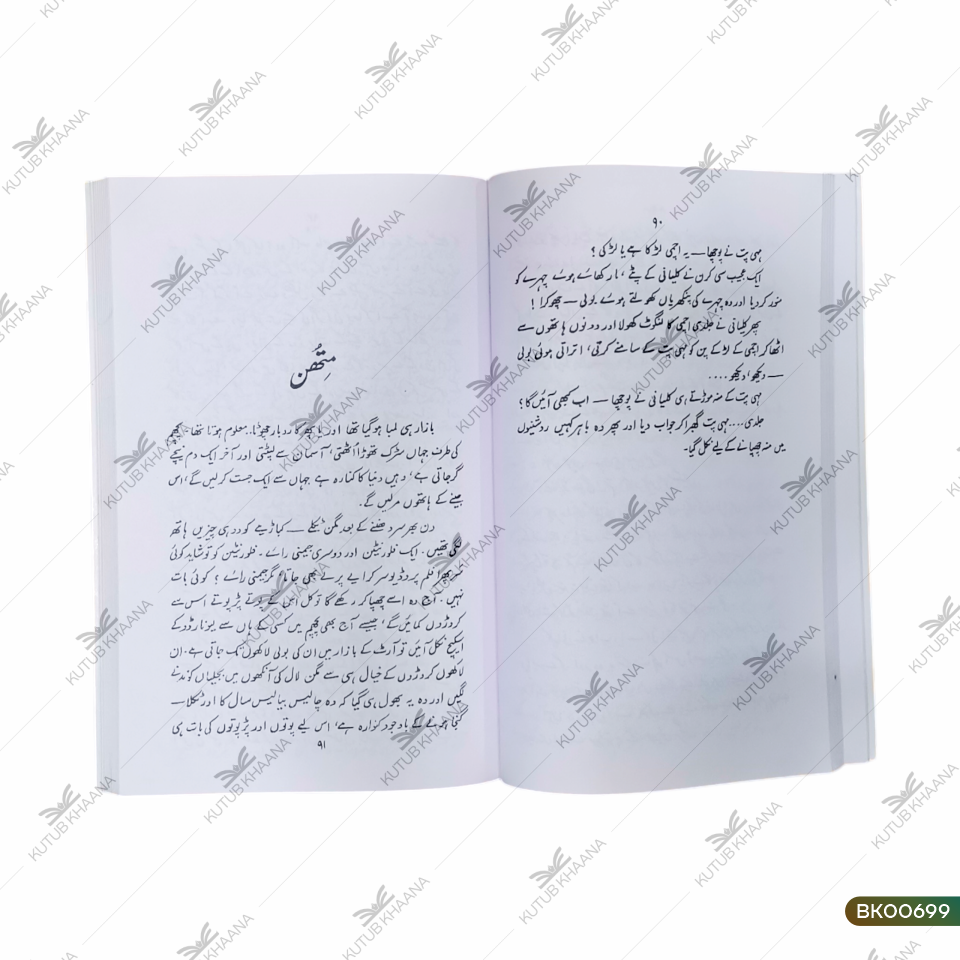 ۹۰
مہی پت نے پوچھا — یہ اچمی لڑکا ہے یا لڑکی ؟
ایک عجیب سی کرن نے کلیانی کے پٹے ، مار کھائے ہوئے چہرے کو
منور کر دیا اور وہ چہرے کی پنکھڑیاں کھولتے ہوئے بولی — چھوکرا !
پھر کلیانی نے جلدی اچمی کا لنگوٹ کھولا اور دونوں ہاتھوں سے
اٹھا کر اچمی کے لڑکے پن کو مہی پت کے سامنے کرتی، اتراتی ہوئی بولی
— دیکھو، دیکھو ....
مہی پت کے منہ موڑتے ہی کلیانی نے پوچھا — اب کبھی آئیں گا؟
جلدی .... مہی پت گھبرا کر جواب دیا اور پھر وہ باہر کہیں روشنیوں
میں منہ چھپانے کے لیے نکل گیا۔
مِتھُن
بازار ہی لمبا ہو گیا تھا اور یا پھر کاروبار چھوٹا.. معلوم ہوتا تھا پچھم
کی طرف جہاں سڑک تھوڑا اٹھتی، آسمان سے لپٹتی اور آخر ایک دم نیچے
گر جاتی ہے، وہیں دنیا کا کنارہ ہے جہاں سے ایک جست کر لیں گے، اس
جینے کے ہاتھوں مر لیں گے۔
دن بھر سر دھننے کے بعد مگن ٹکلے — کباڑیے کو دو ہی چیزیں ہاتھ
لگی تھیں۔ ایک فلورنٹین اور دوسری جیمنی رائے۔ فلورنٹین کو تو شاید کوئی
سر پھرا فلم پروڈیوسر کرایے پر لے بھی جاتا، مگر جیمنی رائے ؟ کوئی بات
نہیں۔ آج وہ اسے چھپا کر رکھے گا تو کل اس کے پوتے پڑپوتے اس سے
کروڑوں کمائیں گے، جیسے آج بھی پچھم میں کسی کے ہاں سے لیونارڈو کے
اسکیچ نکل آئیں تو آرٹ کے بازار میں ان کی بولی لاکھوں تک جاتی ہے۔ ان
لاکھوں کروڑوں کے خیال ہی سے مگن لال کی آنکھوں میں بجلیاں کوندنے
لگیں اور وہ یہ بھول ہی گیا کہ وہ چالیس بیالیس سال کا اور ٹکلا—
گنجا ہونے کے باوجود کنوارہ ہے، اس لیے پوتوں اور پڑپوتوں کی بات ہی
۹۱
KUTUB KHAANA
BK00699